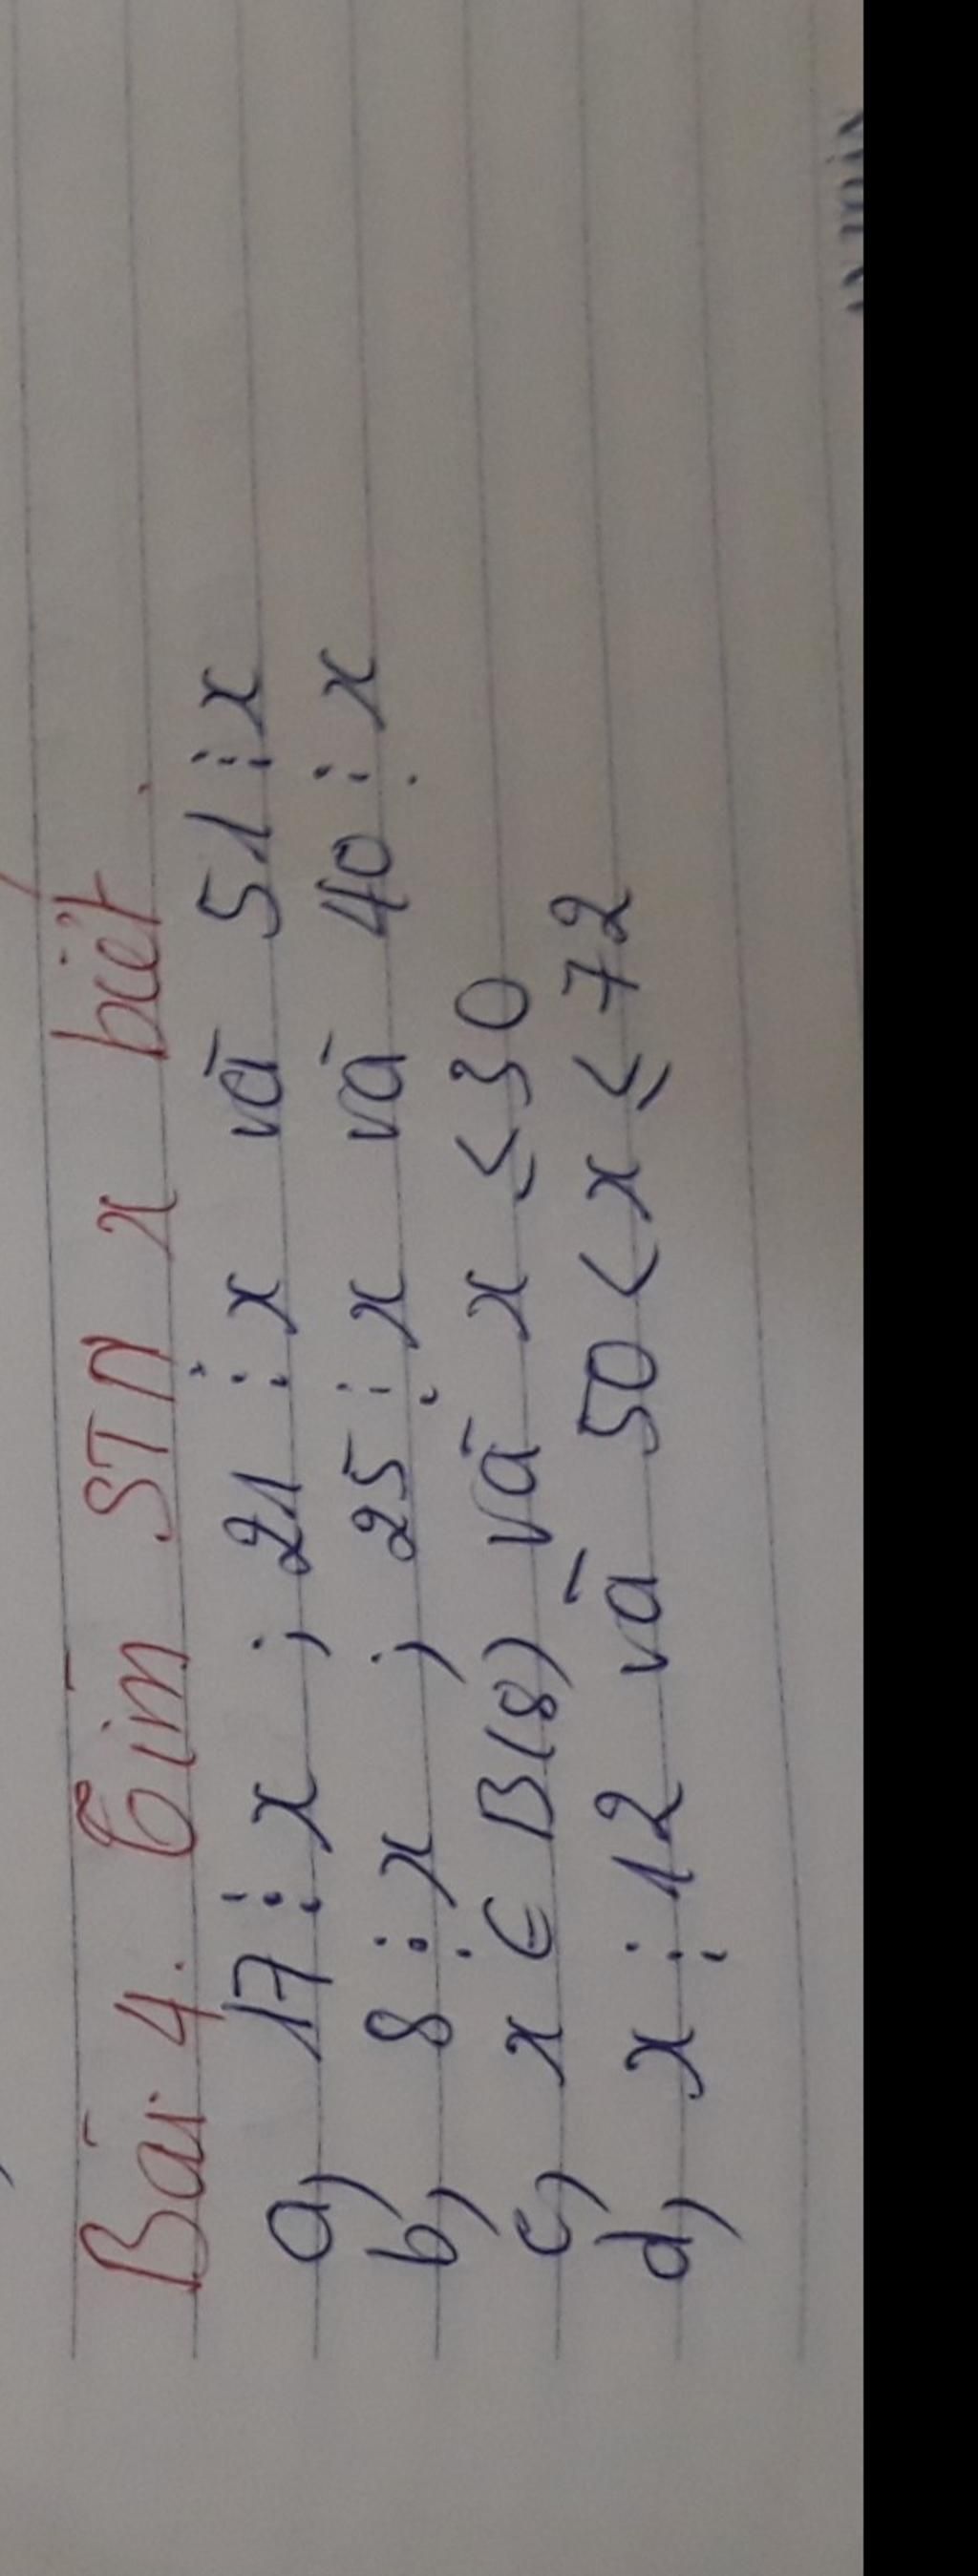 Bài 4. Tìm STN x biết.
a, 17 ⋮ x ; 21 ⋮ x và 51 ⋮ x
b, 8 ⋮ x ; 25 ⋮ x và 40 ⋮ x
c, x ∈ B(8) và x ≤ 30
d, x ⋮ 12 và 50 < x ≤ 72